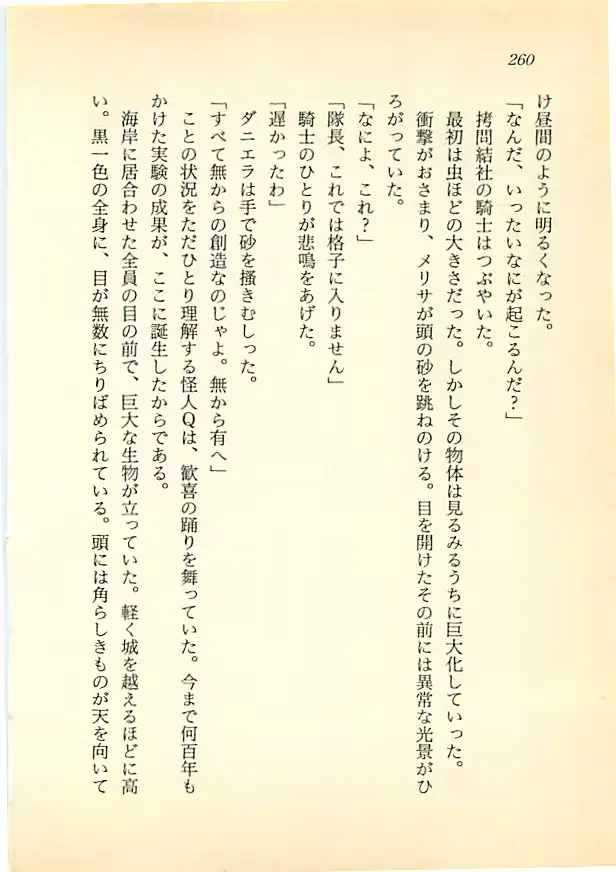 260
け昼間のように明るくなった。
「なんだ、いったいなにが起こるんだ？」
拷問結社の騎士はつぶやいた。
最初は虫ほどの大きさだった。しかしその物体は見るみるうちに巨大化していった。
衝撃がおさまり、メリサが頭の砂を跳ねのける。目を開けたその前には異常な光景がひ
ろがっていた。
「なによ、これ？」
「隊長、これでは格子に入りません」
騎士のひとりが悲鳴をあげた。
「遅かったわ」
ダニエラは手で砂を掻きむしった。
「すべて無からの創造なのじゃよ。無から有へ」
ことの状況をただひとり理解する怪人Qは、歓喜の踊りを舞っていた。今まで何百年も
かけた実験の成果が、ここに誕生したからである。
海岸に居合わせた全員の目の前で、巨大な生物が立っていた。軽く城を越えるほどに高
い。黒一色の全身に、目が無数にちりばめられている。頭には角らしきものが天を向いて